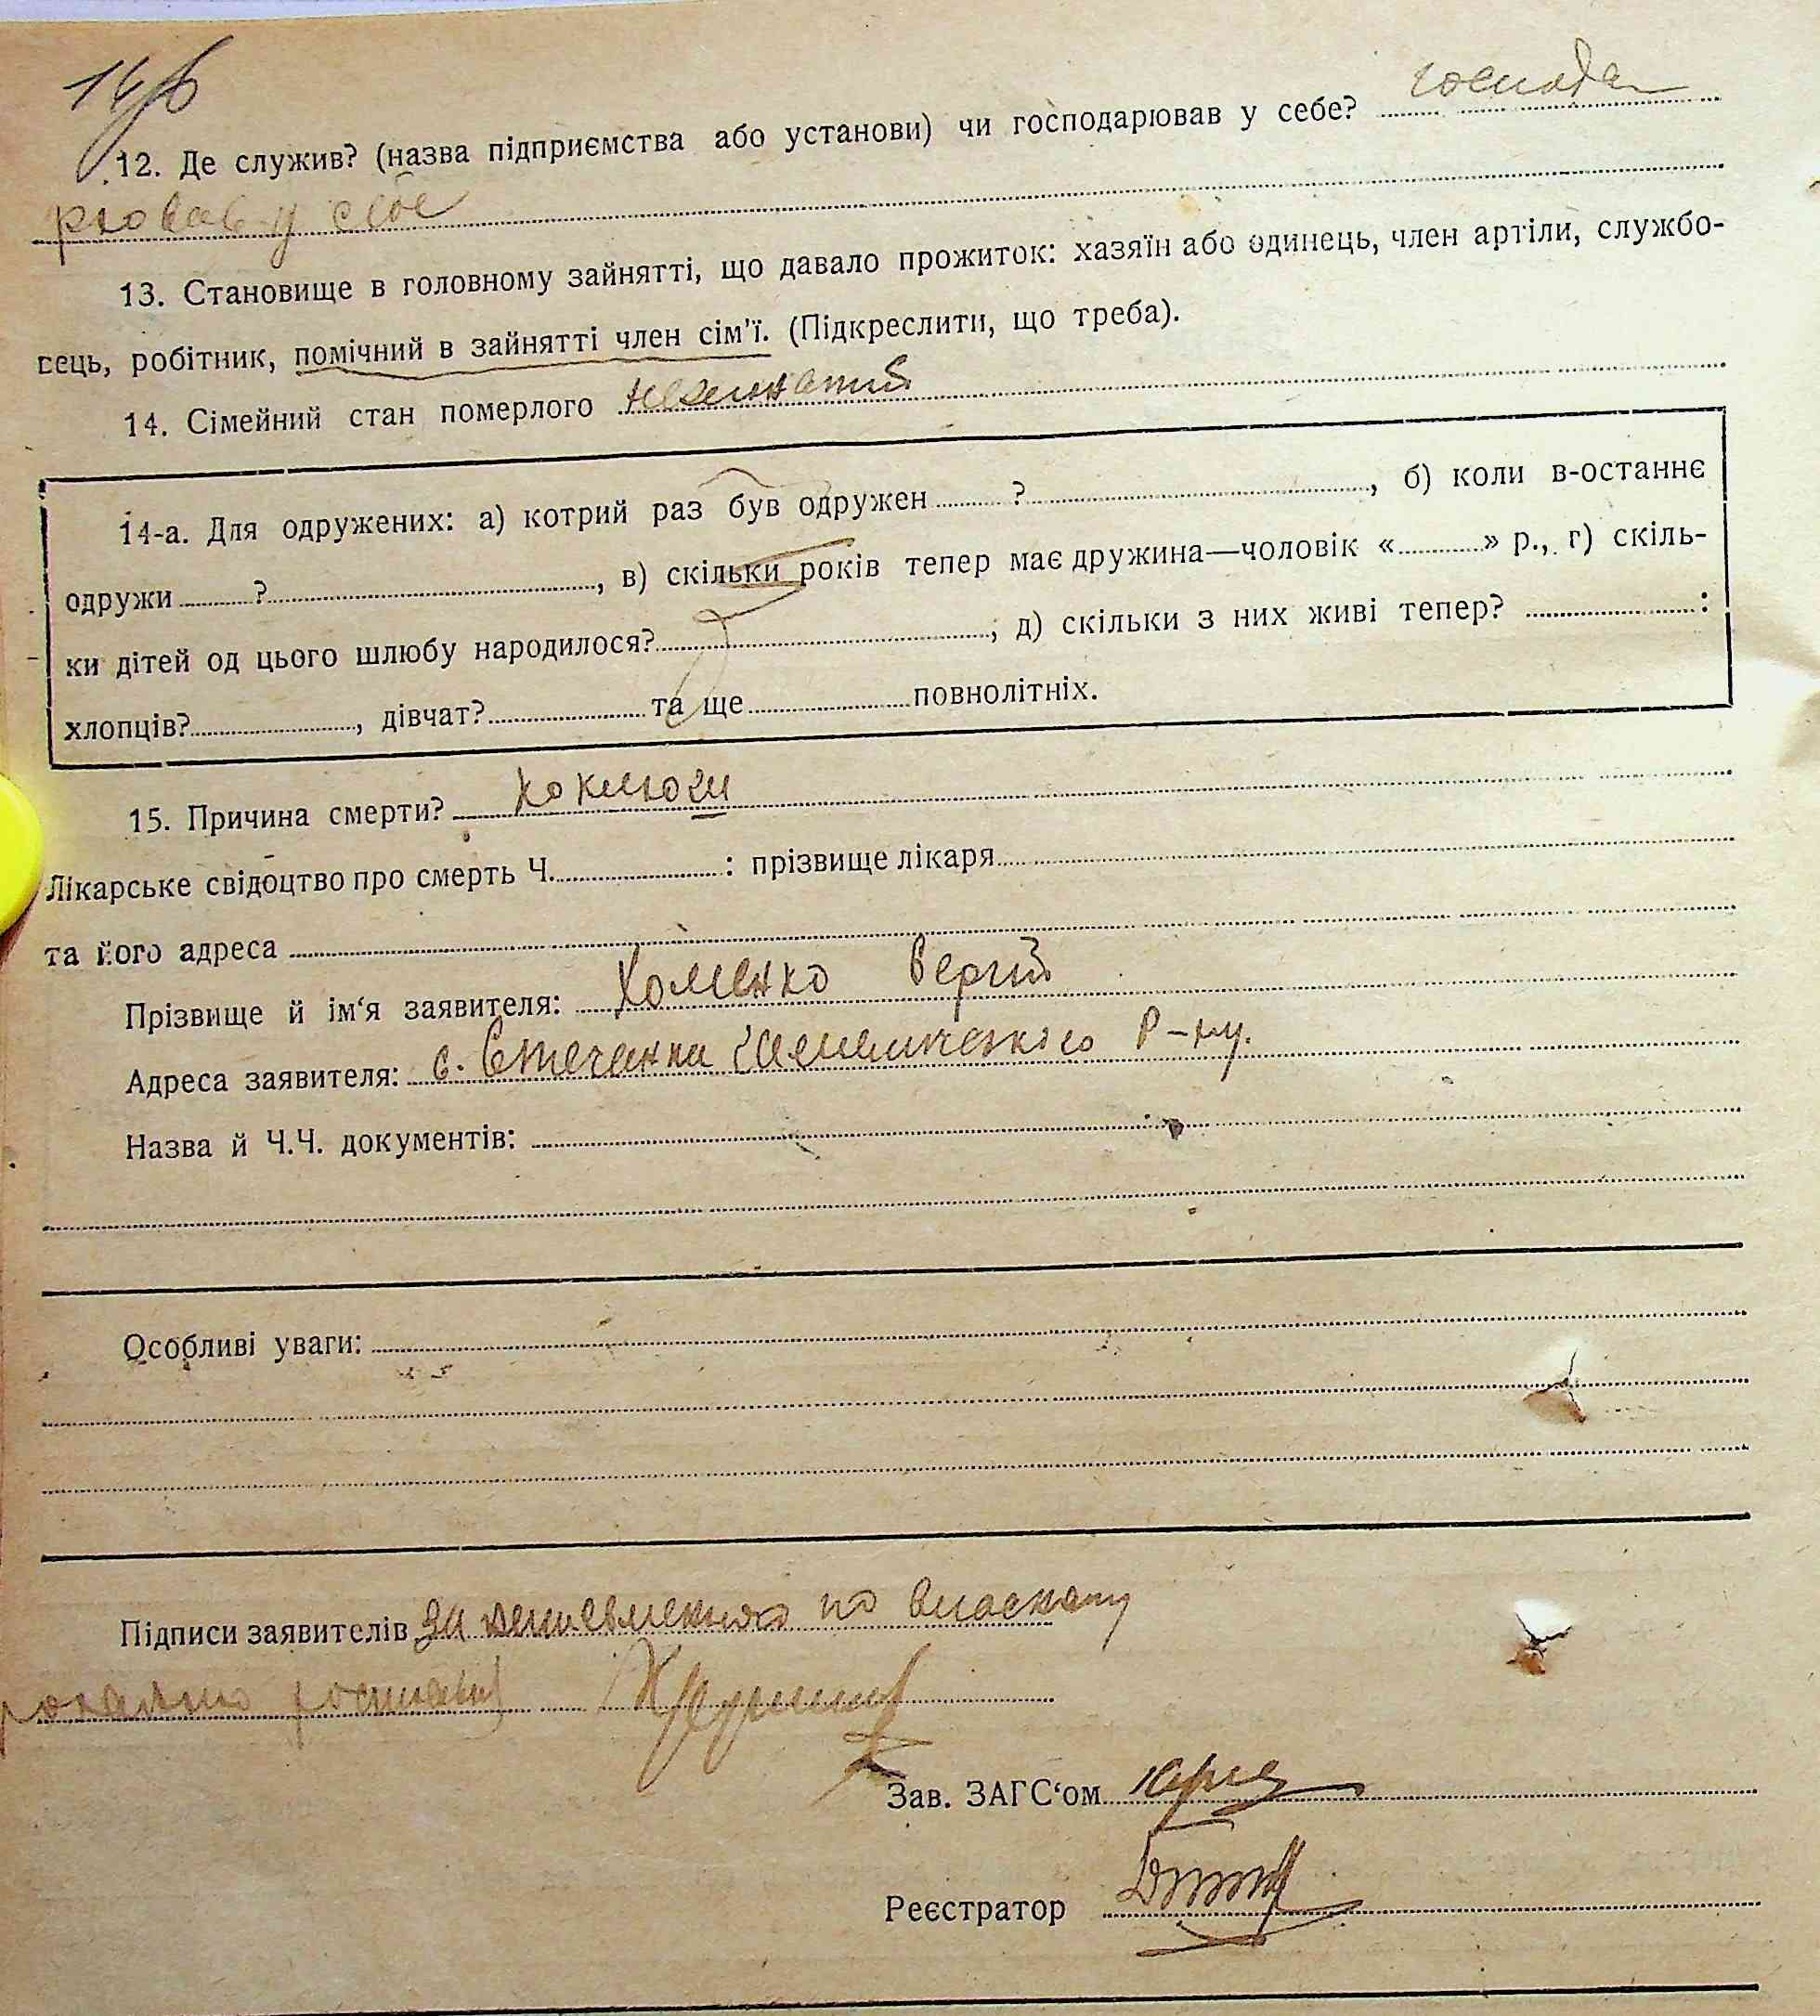 12. Де служив? (назва підприємства або установи) чи господарював у себе? господа
рював у себе
13. Становище в головному зайнятті, що давало прожиток: хазяїн або одинець, член артіли, службо-
вець, робітник, помічний в зайнятті член сім'ї. (Підкреслити, що треба).
14. Сімейний стан померлого нежонатий
14-а. Для одружених: а) котрий раз був одружен ? , б) коли в-останнє
одружи ? , в) скільки років тепер має дружина—чоловік « » р., г) скіль-
ки дітей од цього шлюбу народилося? ; д) скільки з них живі тепер? :
хлопців? , дівчат? та ще повнолітніх.
15. Причина смерти? коклюш
Лікарське свідоцтво про смерть Ч. : прізвище лікаря
та його адреса
Прізвище й ім‘я заявителя: Хоменко Сергій
Адреса заявителя: с. Стечанка р-ну.
Назва й Ч.Ч. документів:
Особливі уваги:
Підписи заявителів за неписьменного по власному
розписався
Зав. ЗАГС‘ом
Реєстратор